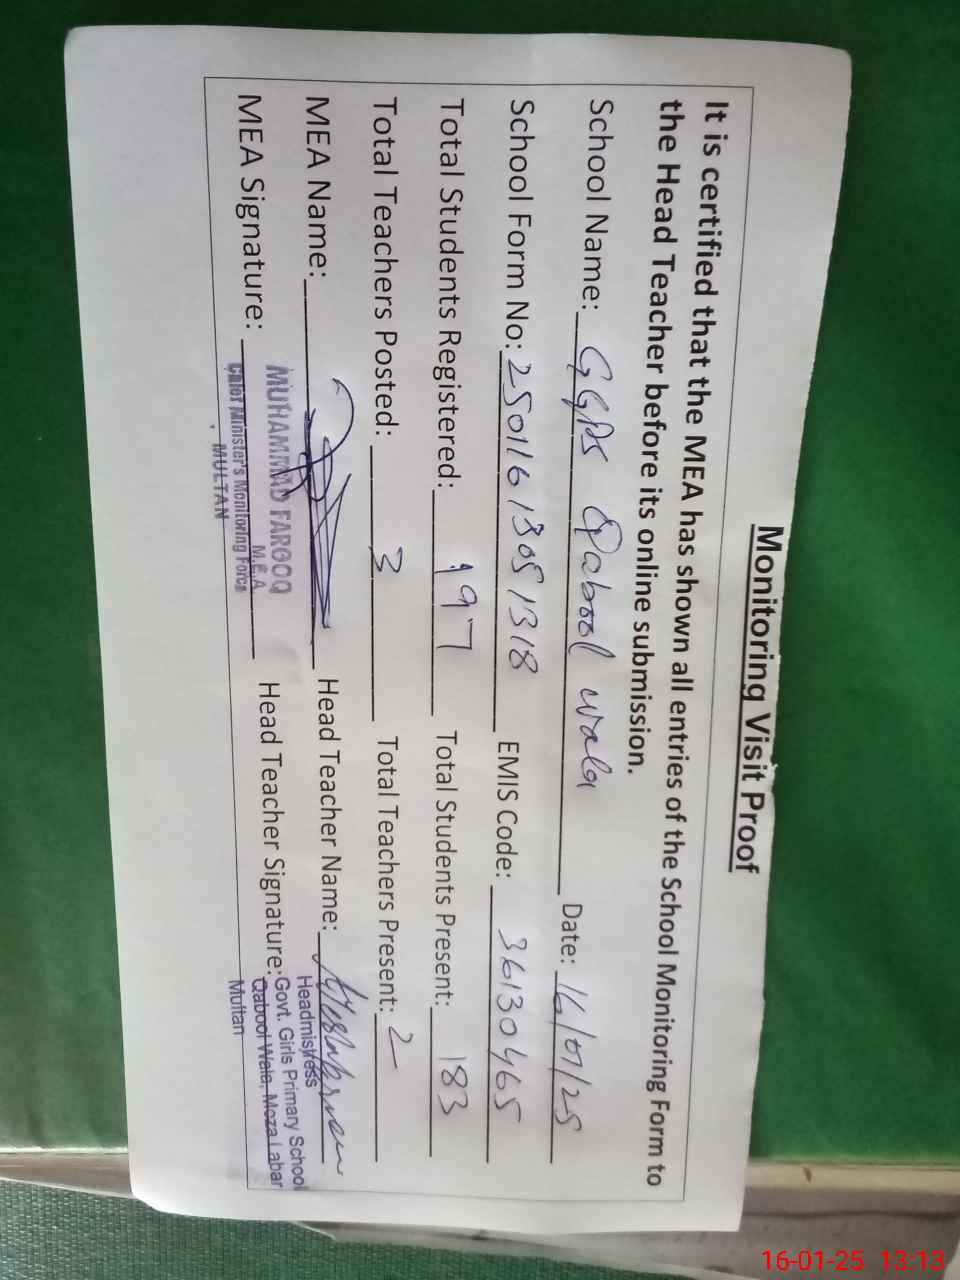 Monitoring Visit Proof
It is certified that the MEA has shown all entries of the School Monitoring Form to
the Head Teacher before its online submission.
School Name: GGPS Qabool wala Date: 16/01/25
School Form No: 25011613051318 EMIS Code: 36130465
Total Students Registered: 197 Total Students Present: 183
Total Teachers Posted: 3 Total Teachers Present: 2
MEA Name: Head Teacher Name:
MEA Signature: Head Teacher Signature:
MUHAMMAD FAROOQ
M.E.A
Chief Minister's Monitoring Force
MULTAN
Headmistress
Govt. Girls Primary School
Qabool Wala, Moza Labar
Multan
16-01-25 13:13